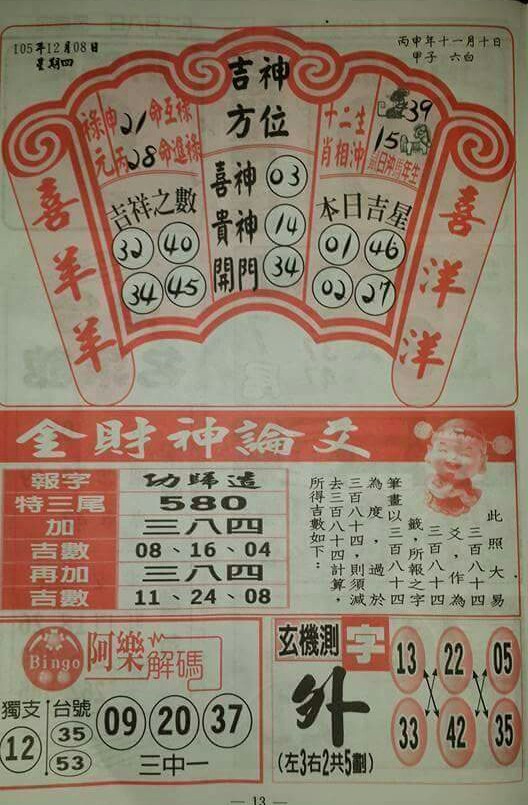 105年12月08日
星期四
丙申年十一月十日
甲子 六白
吉神
方位
喜神 03
貴神 14
開門 34
祿由21命互祿
元丙28命進祿
吉祥之數
32 40
34 45
十二生
肖相沖
39
15
日沖 年生
本日吉星
01 46
02 27
喜羊羊
喜洋洋
金財神論爻
報字 功歸造
特三尾 580
加 三八四
吉數 08、16、04
再加 三八四
吉數 11、24、08
此照大易
三百八十四
爻，作為
三百八十四
籤，所報之字
筆畫以三百八十四
為度，過於
三百八十四，則須減
去三百八十四計算，
所得吉數如下：
Bingo 阿樂解碼
獨支 台號
12 35
53
09 20 37
三中一
玄機測字
外
(左3右2共5劃)
13 22 05
33 42 35
— 13 —